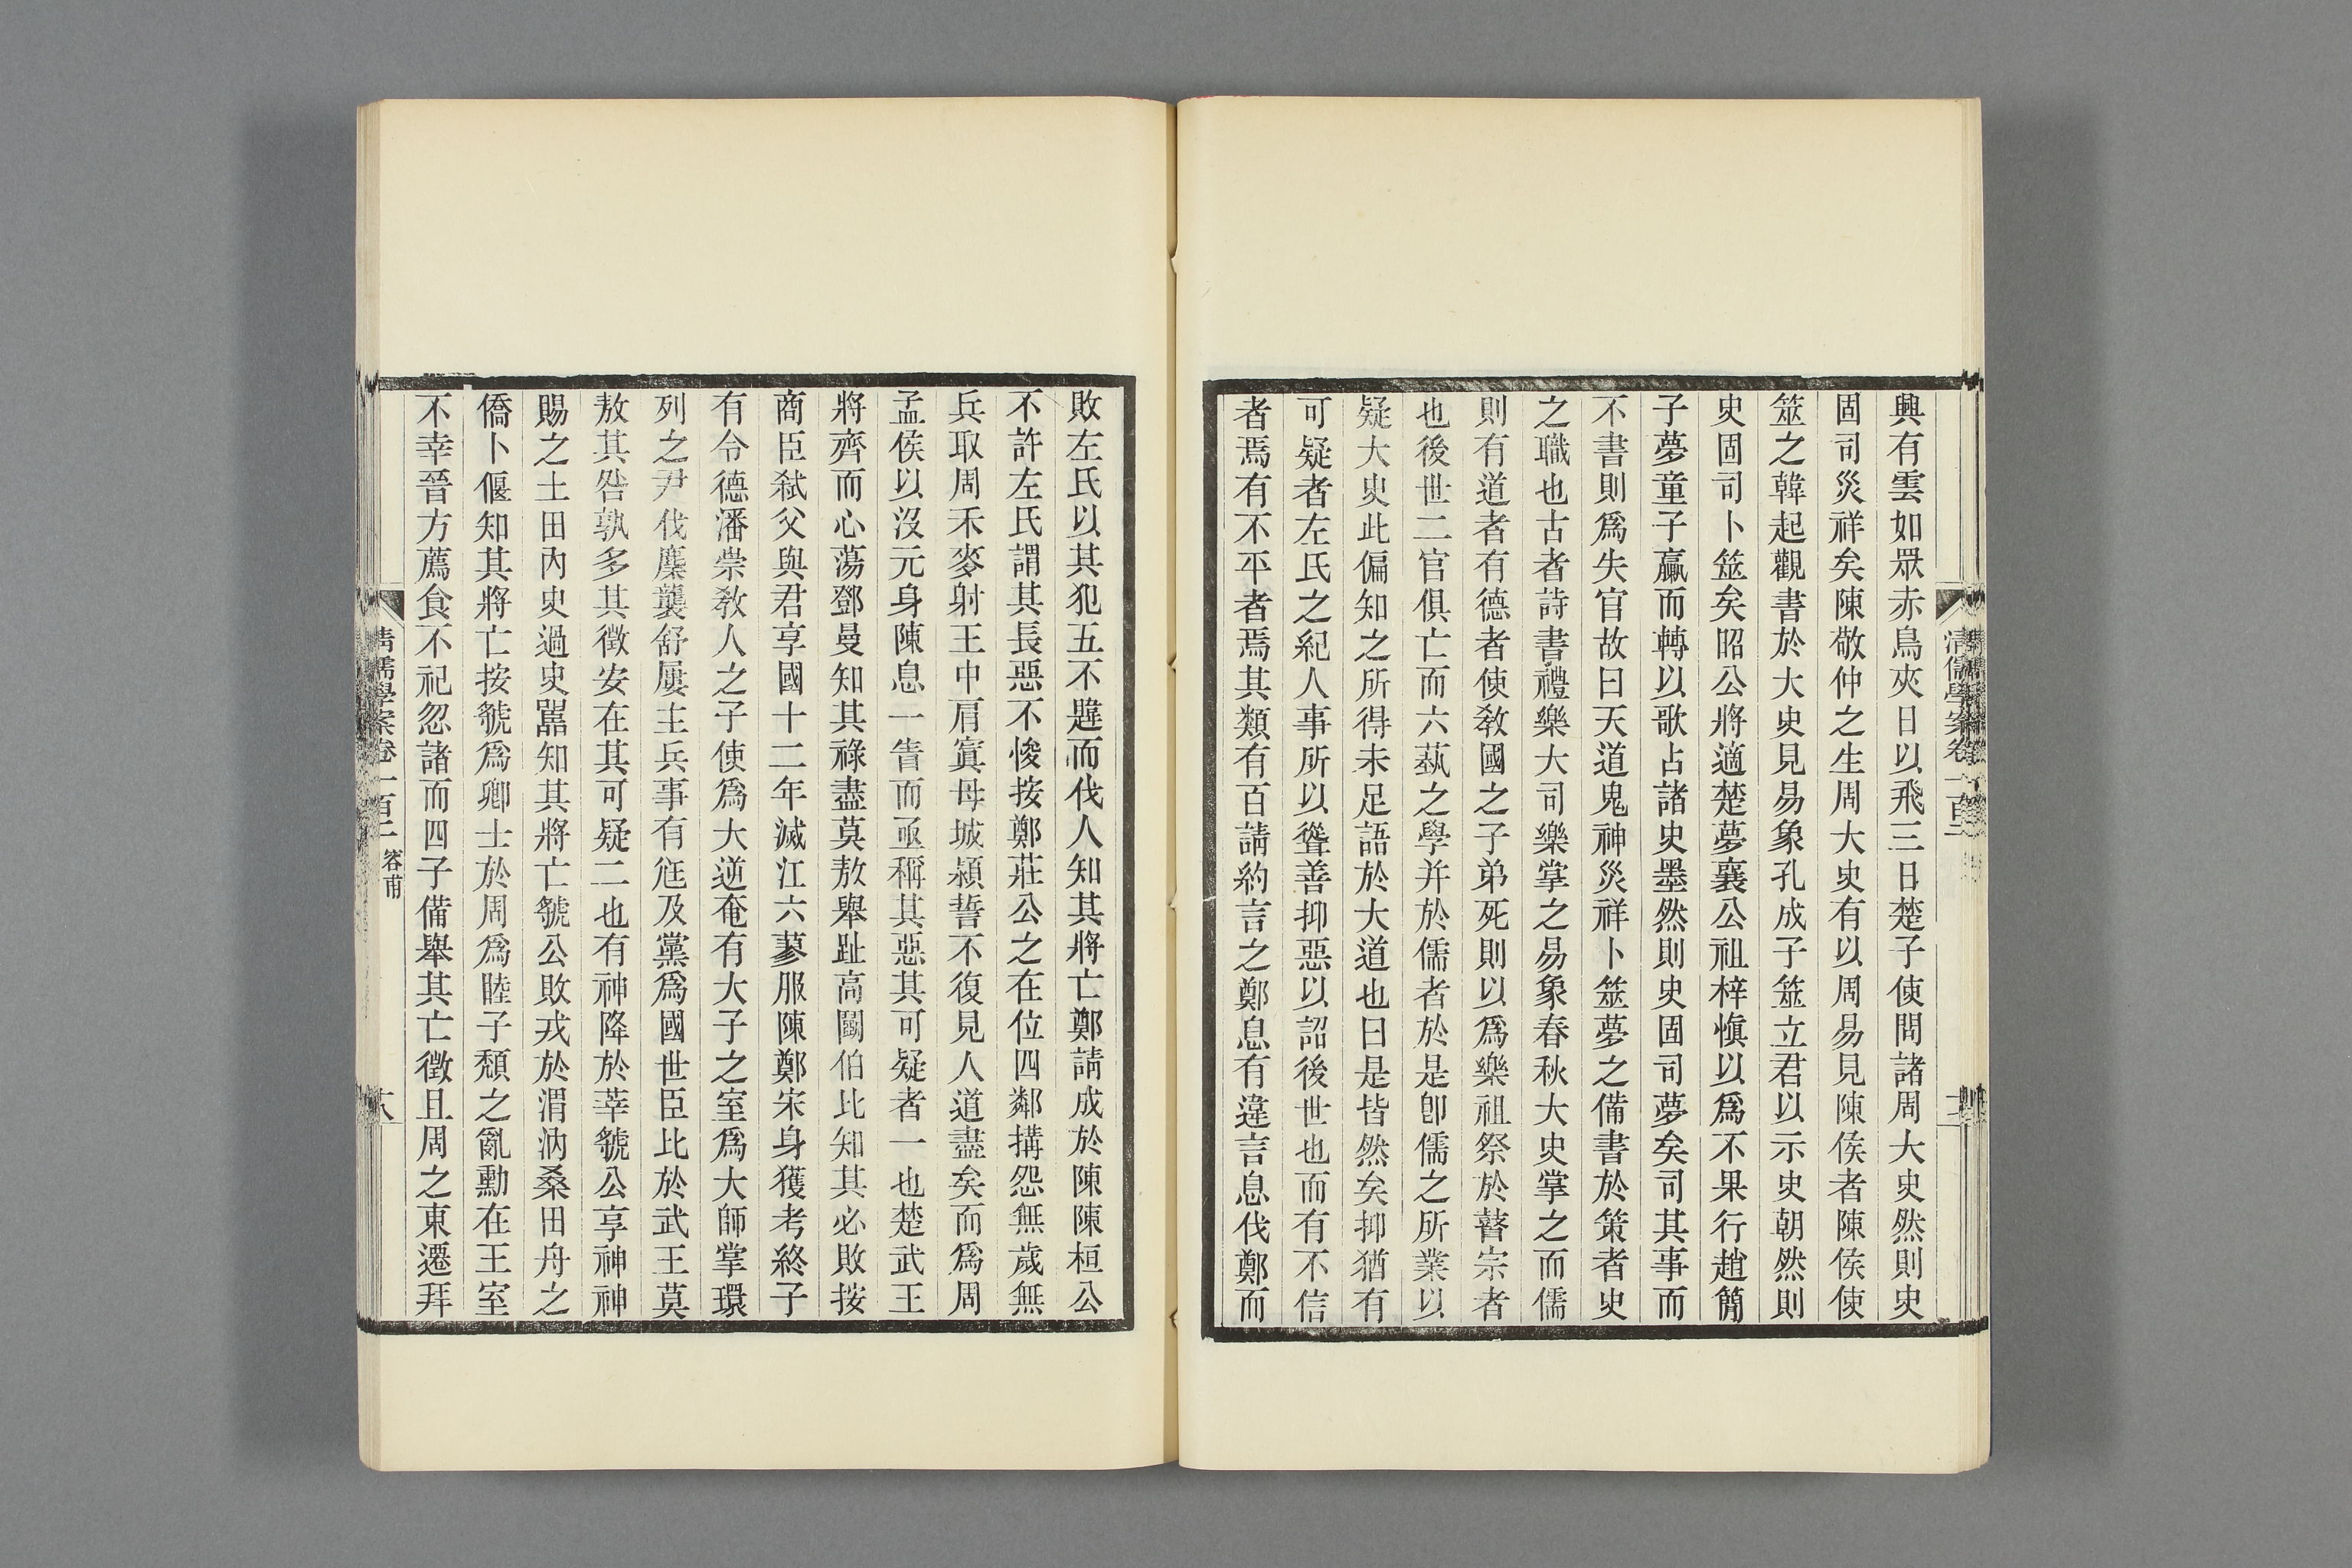 興有雲如眾赤鳥夾日以飛三日楚子使問諸周大史然則史
固司災祥矣陳敬仲之生周大史有以周易見陳侯者陳侯使
筮之韓起觀書於大史見易象孔成子筮立君以示史朝然則
史固司卜筮矣昭公將適楚夢襄公祖梓愼以爲不果行趙簡
子夢童子臝而轉以歌占諸史墨然則史固司夢矣司其事而
不書則爲失官故曰天道鬼神災祥卜筮夢之備書於策者史
之職也古者詩書禮樂大司樂掌之易象春秋大史掌之而儒
則有道者有德者使敎國之子弟死則以爲樂祖祭於瞽宗者
也後世二官俱亡而六蓺之學并於儒者於是卽儒之所業以
疑大史此偏知之所得未足語於大道也曰是皆然矣抑猶有
可疑者左氏之紀人事所以聳善抑惡以詔後世也而有不信
者焉有不平者焉其類有百請約言之鄭息有違言息伐鄭而
清儒學案卷一百二
敗左氏以其犯五不韙而伐人知其將亡鄭請成於陳陳桓公
不許左氏謂其長惡不悛按鄭莊公之在位四鄰搆怨無歲無
兵取周禾麥射王中肩寘母城潁誓不復見人道盡矣而爲周
孟侯以沒元身陳息一眚而亟稱其惡其可疑者一也楚武王
將齊而心蕩鄧曼知其祿盡莫敖舉趾高鬭伯比知其必敗按
商臣弒父與君享國十二年滅江六蓼服陳鄭宋身獲考終子
有令德潘崇敎人之子使爲大逆奄有大子之室爲大師掌環
列之尹伐麇襲舒屢主兵事有尫及黨爲國世臣比於武王莫
敖其咎孰多其徵安在其可疑二也有神降於莘虢公享神神
賜之土田內史過史嚚知其將亡虢公敗戎於渭汭桑田舟之
僑卜偃知其將亡按虢爲卿士於周爲睦子頹之亂勳在王室
不幸晉方薦食不祀忽諸而四子備舉其亡徵且周之東遷拜
清儒學案卷一百二 容甫